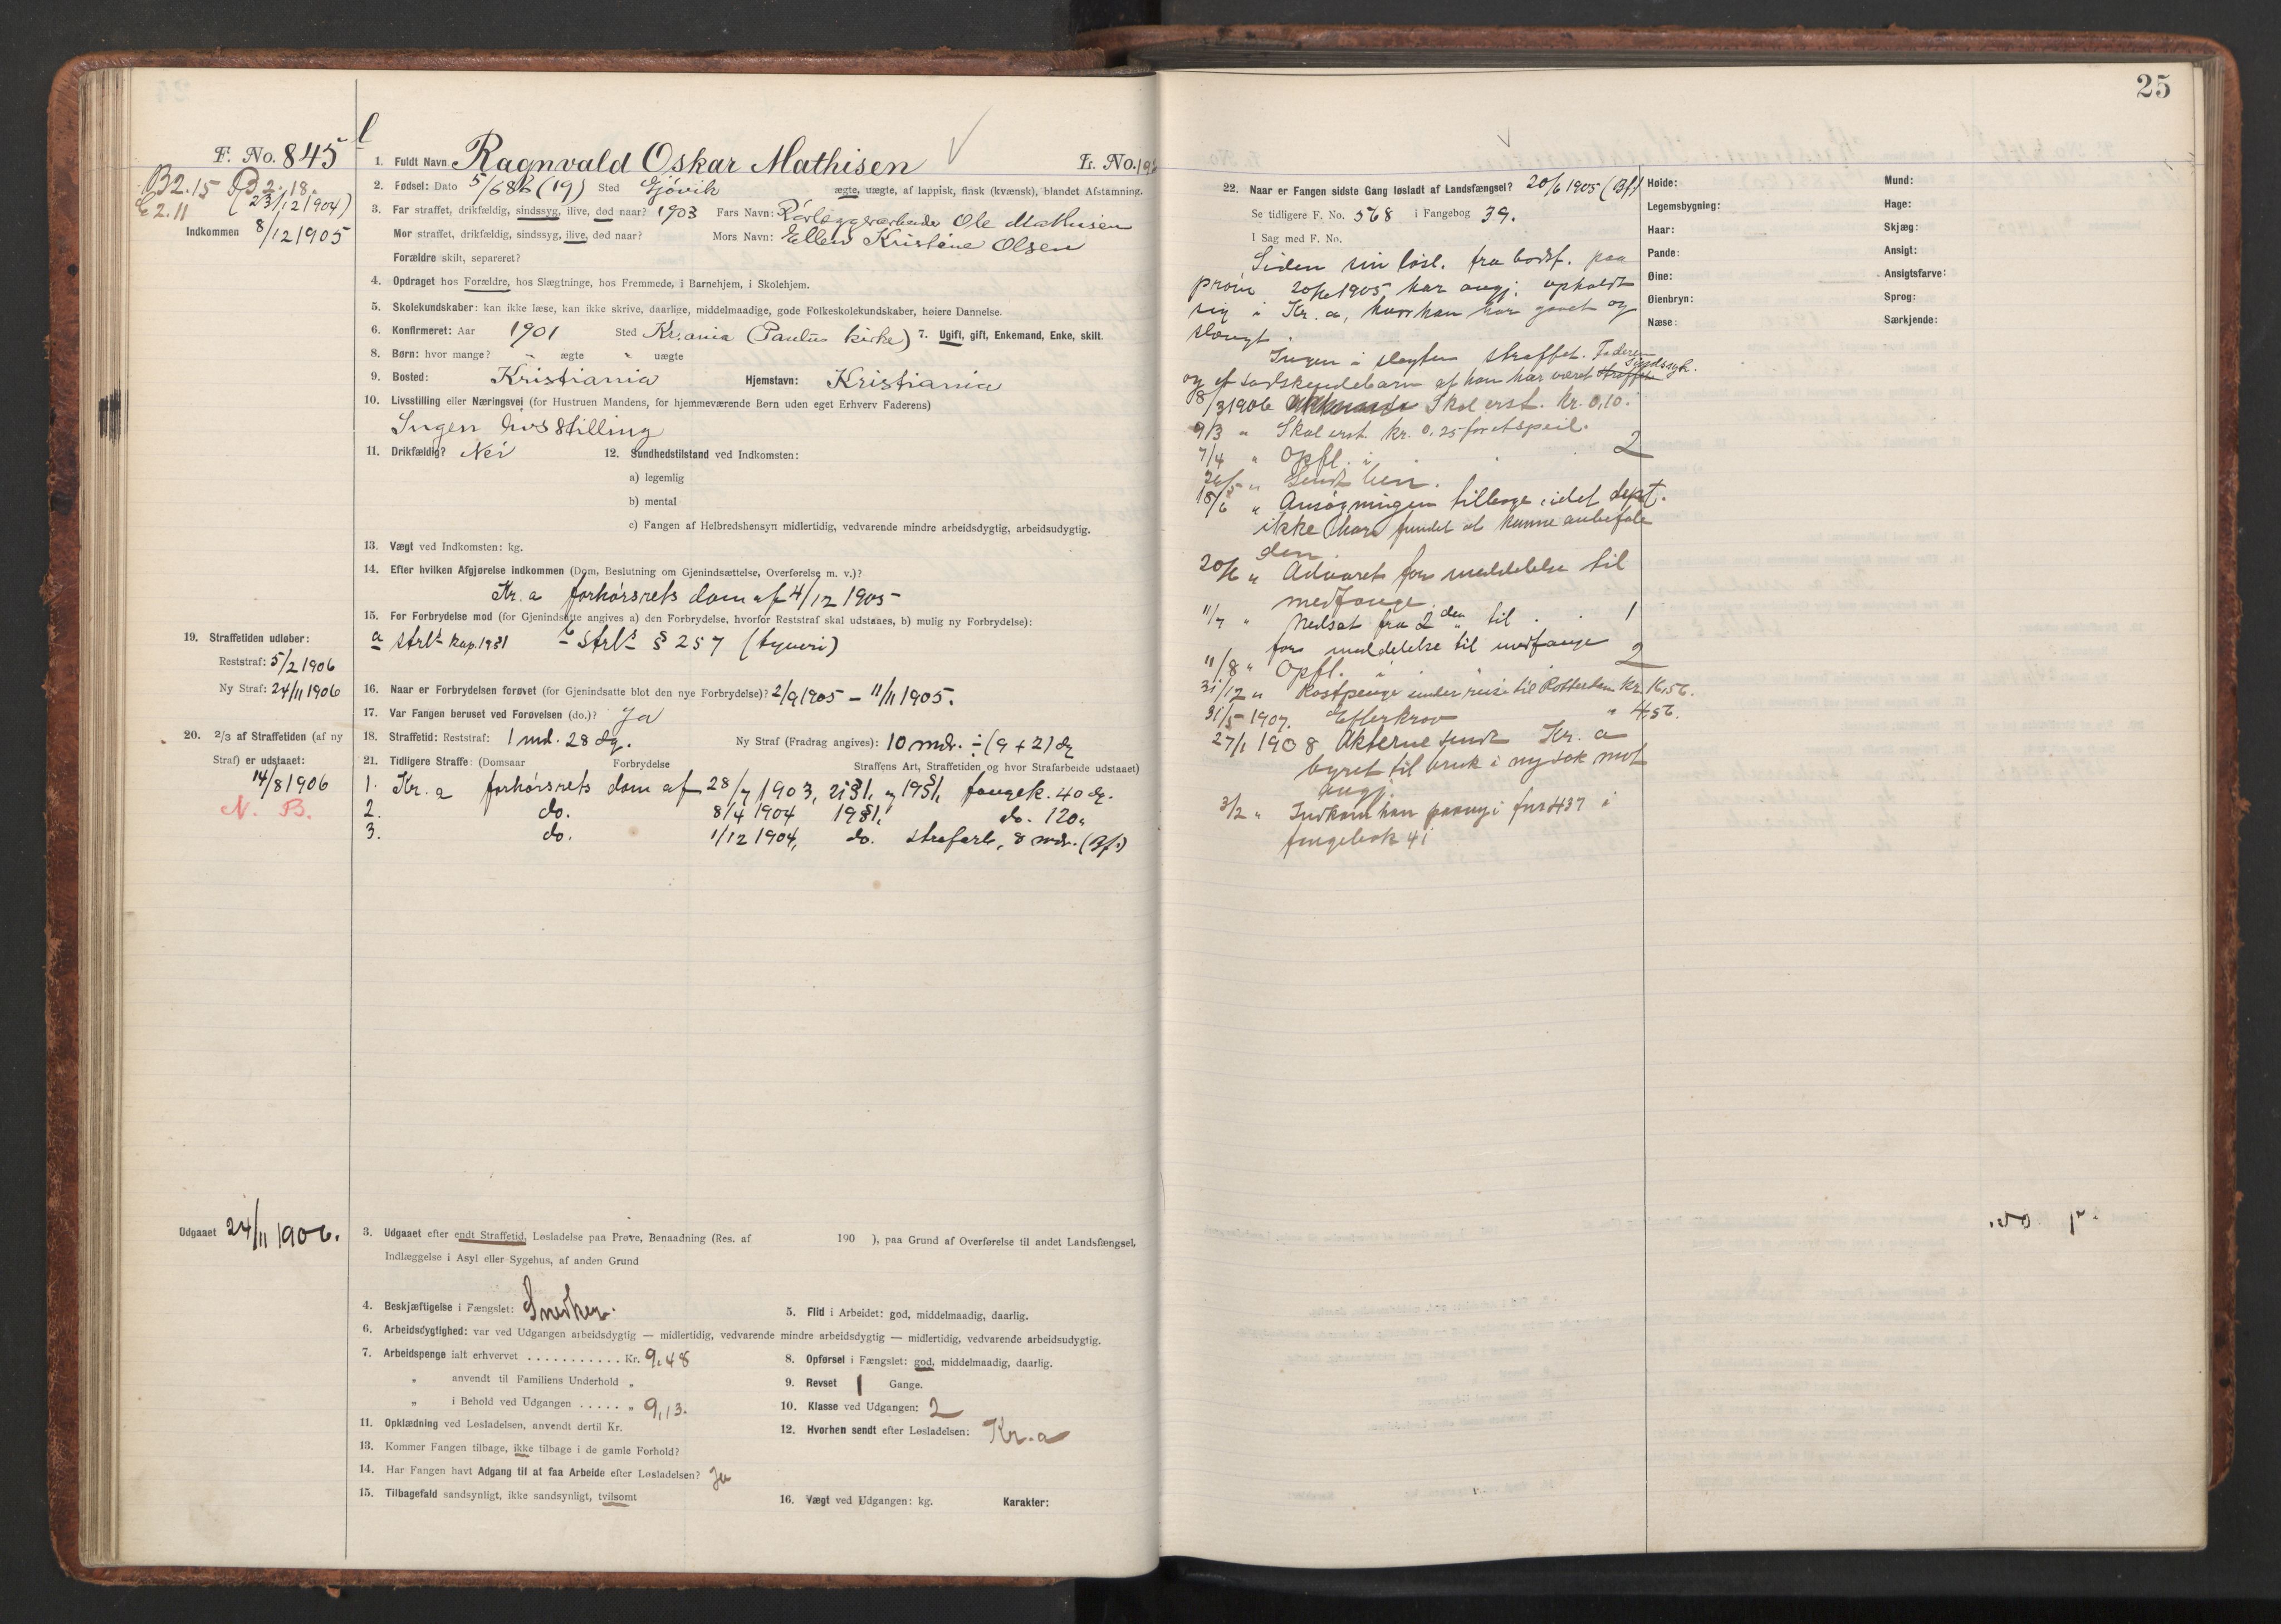 25
F. No. 845
B 2. 15 D 2. 18.
E 2. 11 (23/12 1904)
Indkommen 8/12 1905
1. Fuldt Navn Ragnvald Oskar Mathisen L. No. 19
2. Fødsel: Dato 5/6 86 (19) Sted Gjøvik ægte, uægte, af lappisk, finsk (kvænsk), blandet Afstamning.
3. Far straffet, drikfældig, sindssyg, ilive, død naar? 1903 Fars Navn: Rørlæggerarbeider Ole Mathisen
Mor straffet, drikfældig, sindssyg, ilive, død naar? Mors Navn: Ellen Kristine Olsen
Forældre skilt, separeret?
4. Opdraget hos Forældre, hos Slægtninge, hos Fremmede, i Barnehjem, i Skolehjem.
5. Skolekundskaber: kan ikke læse, kan ikke skrive, daarlige, middelmaadige, gode Folkeskolekundskaber, høiere Dannelse.
6. Konfirmeret: Aar 1901 Sted Kr.ania (Paulus kirke) 7. Ugift, gift, Enkemand, Enke, skilt.
8. Børn: hvor mange? " ægte " uægte
9. Bosted: Kristiania Hjemstavn: Kristiania
10. Livsstilling eller Næringsvei (for Hustruen Mandens, for hjemmeværende Børn uden eget Erhverv Faderens)
Ingen livsstilling
11. Drikfældig? Nei 12. Sundhedstilstand ved Indkomsten:
a) legemlig
b) mental
c) Fangen af Helbredshensyn midlertidig, vedvarende mindre arbeidsdygtig, arbeidsudygtig.
13. Vægt ved Indkomsten: kg.
14. Efter hvilken Afgjørelse indkommen (Dom, Beslutning om Gjenindsættelse, Overførelse m. v.)?
Kr.a forhørsrets dom af 4/12 1905
15. For Forbrydelse mod (for Gjenindsatte angives a) den Forbrydelse, hvorfor Reststraf skal udstaaes, b) mulig ny Forbrydelse):
a strl's kap. 19 § 1 b strl's § 257 (tyveri)
19. Straffetiden udløber:
Reststraf: 5/2 1906
Ny Straf: 24/11 1906
16. Naar er Forbrydelsen forøvet (for Gjenindsatte blot den nye Forbrydelse)? 2/9 1905 – 11/11 1905.
17. Var Fangen beruset ved Forøvelsen (do.)? Ja
18. Straffetid: Reststraf: 1 md. 28 dg. Ny Straf (Fradrag angives): 10 mdr. ÷ (9 + 2) dg
20. 2/3 af Straffetiden (af ny
Straf) er udstaaet:
14/8 1906
N. B.
21. Tidligere Straffe: (Domsaar Forbrydelse Straffens Art, Straffetiden og hvor Strafarbeide udstaaet)
1. Kr.a forhørsrets dom af 28/7 1903, 21 § 1, og 19 § 1, fængsl. 40 dg.
2. do. 8/4 1904 19 § 1, do. 120 "
3. do. 1/12 1904, do. strafarb., 8 mdr. (Bf.)
Udgaaet 24/11 1906.
3. Udgaaet efter endt Straffetid, Løsladelse paa Prøve, Benaadning (Res. af 190 ), paa Grund af Overførelse til andet Landsfængsel,
Indlæggelse i Asyl eller Sygehus, af anden Grund
4. Beskjæftigelse i Fængslet: Snedker. 5. Flid i Arbeidet: god, middelmaadig, daarlig.
6. Arbeidsdygtighed: var ved Udgangen arbeidsdygtig — midlertidig, vedvarende mindre arbeidsdygtig — midlertidig, vedvarende arbeidsudygtig.
7. Arbeidspenge ialt erhvervet . . . . . . . . . . . Kr. 9.48 8. Opførsel i Fængslet: god, middelmaadig, daarlig.
" anvendt til Familiens Underhold " 9. Revset 1 Gange.
" i Behold ved Udgangen . . . . . " 9,13. 10. Klasse ved Udgangen: 2
11. Opklædning ved Løsladelsen, anvendt dertil Kr. 12. Hvorhen sendt efter Løsladelsen: Kr.a
13. Kommer Fangen tilbage, ikke tilbage i de gamle Forhold?
14. Har Fangen havt Adgang til at faa Arbeide efter Løsladelsen? Ja
15. Tilbagefald sandsynligt, ikke sandsynligt, tvilsomt 16. Vægt ved Udgangen: kg. Karakter:
22. Naar er Fangen sidste Gang løsladt af Landsfængsel? 20/6 1905 (Bf.)
Se tidligere F. No. 568 i Fangebog 39.
I Sag med F. No.
Siden sin løsl. fra bodsf. paa
prøve 20/6 1905 har angj. opholdt
sig i Kr.a, hvor han har gaaet og
slængt.
Ingen i slægten straffet. Faderen
og et sødskendebarn af han har været straffet sindssyk.
8/3 1906 Skal erst. Kr. 0,10.
9/3 " Skal erst. Kr. 0.25 for et speil.
7/4 " Opfl. i . . 2
26/5 " Sendt ben.
18/6 " Ansøgningen tilbage, idet dept.
ikke har fundet at kunne anbefale
den.
20/6 " Advaret for meddelelse til
medfange.
11/7 " Nedsat fra 2den til . . 1
for meddelelse til medfange
11/8 " Opfl. i 2
31/12 " Kostpenge under reise til Rotterdam Kr. 16,56.
31/5 1907. Efterkrav " 4.56.
27/1 1908 Akterne sendt Kr.a
byret til bruk i ny sak mot
angj.
3/2 " Indkom han paany i fnr 437 i
fangebok 41
Høide: Mund:
Legemsbygning: Hage:
Haar: Skjæg:
Pande: Ansigt:
Øine: Ansigtsfarve:
Øienbryn: Sprog:
Næse: Særkjende: